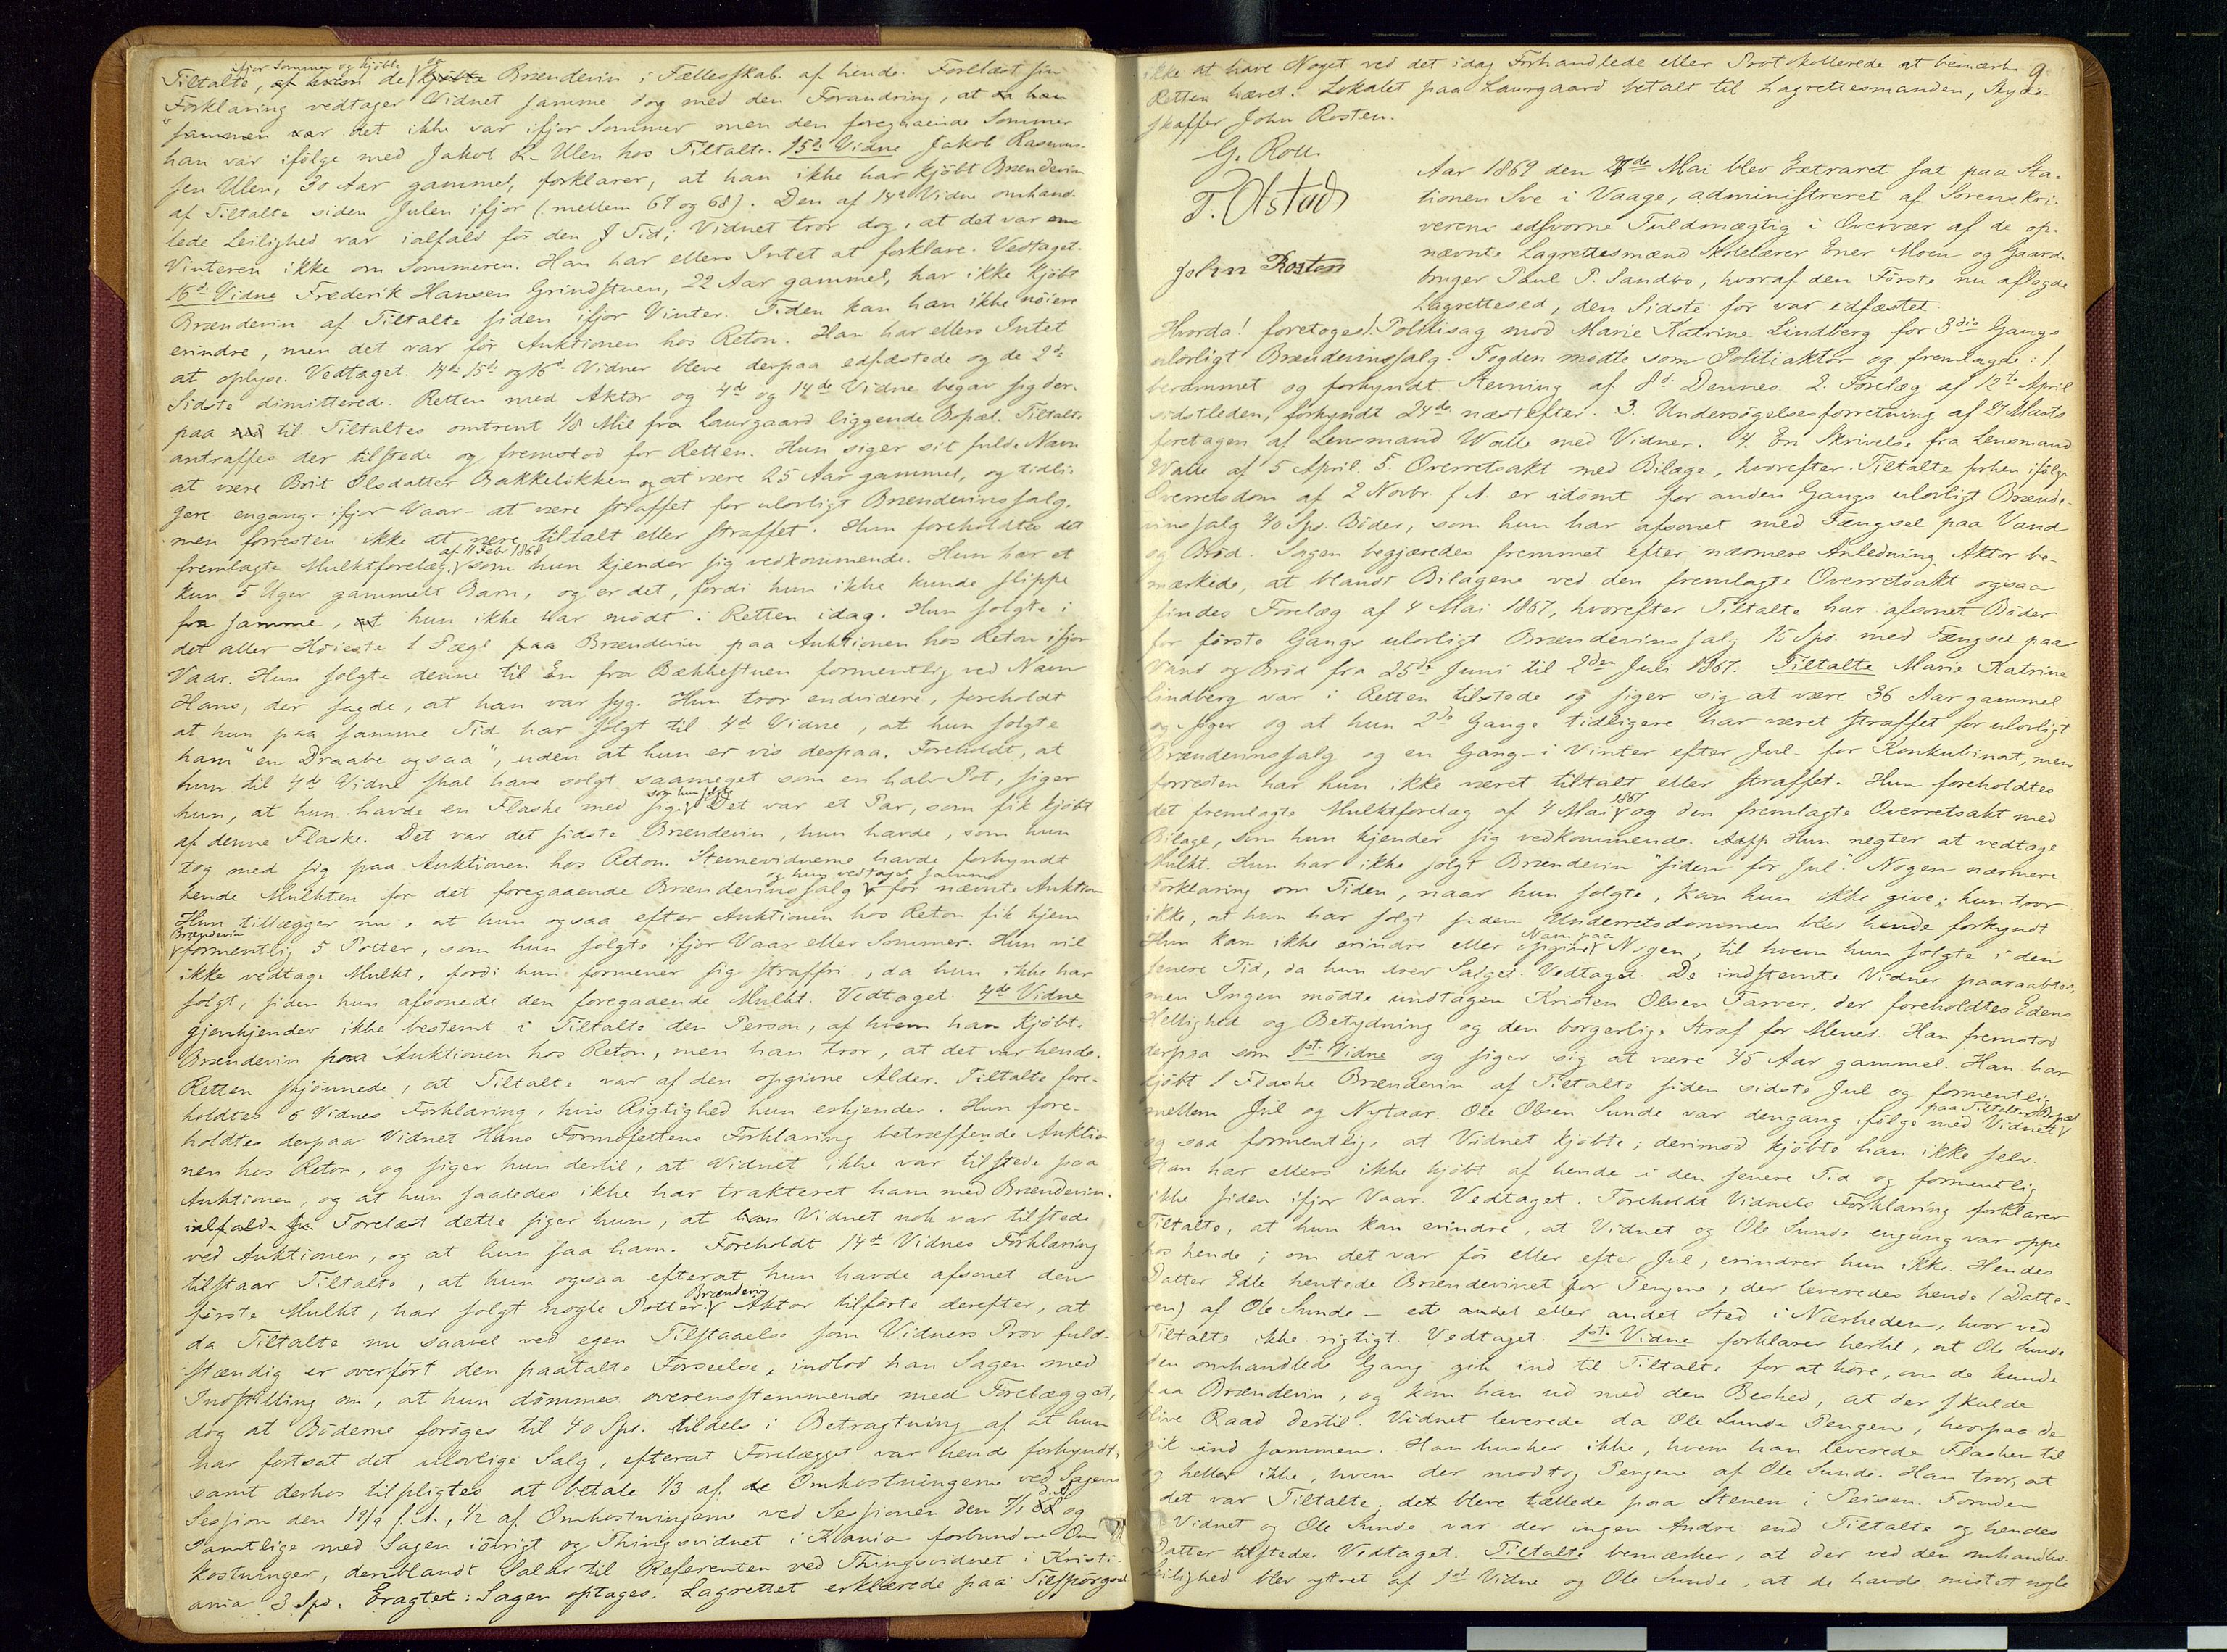 ifjor Sommer og kjöbte
Tiltalte, de Brændevin i Fællesskab af hende. Forelæst sin
Forklaring vedtager Vidnet samme dog med den Forandring, at
det ikke var ifjor Sommer men den foregaaende Sommer
han var ifølge med Jakob R. Ulen hos Tiltalte. 15de Vidne Jakob Rasmus-
sen Ulen, 30 Aar gammel, forklarer, at han ikke har kjöbt Brændevin
af Tiltalte siden Julen ifjor (: mellem 67 og 68). Den af 14de Vidne omhand-
lede Leilighed var ialfald för den Tid; Vidnet tror dog, at det var om
Vinteren ikke om Sommeren. Han har ellers Intet at forklare. Vedtaget.
16de Vidne Frederik Hansen Grindstuen, 22 Aar gammel, har ikke kjöbt
Brændevin af Tiltalte siden ifjor Vinter. Tiden kan han ikke nöiere
erindre, men det var för Auktionen hos Reton. Han har ellers Intet
at oplyse. Vedtaget. 14de 15de og 16de Vidner bleve derpaa edfæstede og de 2de
Sidste dimitterede. Retten med Aktor og 4de og 14de Vidne begav sig der-
paa til Tiltaltes omtrent 1/8 Mil fra Laurgaard liggende Bopæl. Tiltalte
antraffes der tilstede og fremstod for Retten. Hun siger sit fulde Navn
at være Brit Olsdatter Bakkelökken og at være 25 Aar gammel, og tidli-
gere engang - ifjor Vaar - at være straffet for ulovligt Brændevinssalg,
men forresten ikke at være tiltalt eller straffet. Hun foreholdtes det
fremlagte Mulktforelæg af 11 Febr 1868 som hun kjender sig vedkommende. Hun har et
kun 5 Uger gammelt Barn, og er det, fordi hun ikke kunde slippe
fra samme, at hun ikke har mödt i Retten idag. Hun solgte i
det aller Höieste 1 Pægl Brændevin paa Auktionen hos Reton ifjor
Vaar. Hun solgte denne til En fra Bækkestuen formentlig ved Navn
Hans, der sagde, at han var syg. Hun tror endvidere, foreholdt
at hun paa samme Tid har solgt til 4de Vidne, at hun solgte
ham "en Draabe ogsaa", uden at hun er vis derpaa. Foreholdt, at
hun til 4de Vidne skal have solgt saameget som en halv Pot, siger
hun, at hun havde en Flaske med sig, som hun solgte. Det var et Par, som fik kjöbt
af denne Flaske. Det var det sidste Brændevin, hun havde, som hun
tog med sig paa Auktionen hos Reton. Stevnevidnerne havde forkyndt
hende Mulkten for det foregaaende Brændevinssalg og hun vedtaget samme för nævnte Auktion
Hun tillægger nu, at hun ogsaa efter Auktionen hos Reton fik hjem
Brændevin
formentlig 5 Potter, som hun solgte ifjor Vaar eller Sommer. Hun vil
ikke vedtage Mulkt, fordi hun formener sig straffri, da hun ikke har
solgt, siden hun afsonede den foregaaende Mulkt. Vedtaget. 4de Vidne
gjenkjender ikke bestemt i Tiltalte den Person, af hvem han kjöbte
Brændevin paa Auktionen hos Reton, men han tror, at det var hende.
Retten skjönnede, at Tiltalte var af den opgivne Alder. Tiltalte fore-
holdtes 6 Vidnes Forklaring, hvis Rigtighed hun erkjender. Hun fore-
holdtes derpaa Vidnet Hans Formosettens Forklaring betræffende Auktio
nen hos Reton, og siger hun dertil, at Vidnet ikke var tilstede paa
Auktionen, og at hun saaledes ikke har trakteret ham med Brændevin.
Forelæst dette siger hun, at Vidnet nok var tilstede
ved Auktionen, og at hun saa ham. Foreholdt 14de Vidnes Forklaring
tilstaar Tiltalte, at hun ogsaa efterat hun havde afsonet den
förste Mulkt, har solgt nogle Potter Brændevin. Aktor tilförte derefter, at
da Tiltalte nu saavel ved egen Tilstaaelse som Vidners Prov fuld-
stændig er overfört den paatalte Forseelse, indlod han Sagen med
Indstilling om, at hun dömmes overensstemmende med Forelægget,
dog at Böderne foröges til 40 Spd. tildels i Betragtning af at hun
har fortsat det ulovlige Salg, efterat Forelægget var hende forkyndt,
samt derhos tilpligtes at betale 1/3 af Omkostningerne ved Sagens
Session den 19/9 f. A., 1/2 af Omkostningerne ved Sessionen den 7/1 d.A. og
samtlige med Sagen iövrigt og Thingsvidnet i Kr.ania forbundne Om
kostninger, deriblandt Salær til Referenten ved Thingsvidnet i Kristi-
ania 3 Spd. Eragtet: Sagen optages. Lagrettet erklærede paa Tilspörgsel
ikke at have Noget ved det idag Forhandlede eller Protokollerede at bemærke 9
Retten hævet. Lokalet paa Laurgaard betalt til Lagrettesmanden, Skyds-
skaffer John Rosten.
G. Roll.
T. Olstad
John Rosten
Aar 1869 den de Mai blev Extraret sat paa Sta-
tionen Sve i Vaage, administreret af Sorenskri-
verens edsvorne Fuldmægtig i Overvær af de op-
nævnte Lagrettesmænd Skolelærer Ener Moen og Gaard-
bruger Paul P. Sandbo, hvoraf den Förste nu aflagde
Lagrettesed, den Sidste för var edfæstet.
Hvorda! foretoges! Politisag mod Marie Katrine Lindberg for 3die Gangs
ulovligt Brændevinssalg. Fogden mödte som Politiaktor og fremlagde: 1.
berammet og forkyndt Stevning af 8de Dennes. 2. Forelæg af 12te April
sidstleden, forkyndt 24de næstefter. 3. Undersögelsesforretning af 27 Marts
foretagen af Lensmand Walle med Vidner. 4. En Skrivelse fra Lensmand
Walle af 5 April. 5. Overretsakt med Bilage, hvorefter Tiltalte forhen ifölge
Overretsdom af 2 Novbr. f. A. er idömt for anden Gangs ulovligt Brænde-
vinssalg 40 Spd. Böder, som hun har afsonet med Fængsel paa Vand
og Bröd. Sagen begjæredes fremmet efter nærmere Anledning. Aktor be-
mærkede, at blandt Bilagene ved den fremlagte Overretsakt ogsaa
findes Forelæg af 4 Mai 1867, hvorefter Tiltalte har afsonet Böder
for förste Gangs ulovligt Brændevinssalg 15 Spd. med Fængsel paa
Vand og Bröd fra 25de Juni til 2den Juli 1867. Tiltalte Marie Katrine
Lindberg var i Retten tilstede og siger sig at være 36 Aar gammel
og siger og at hun 2de Gange tidligere har været straffet for ulovligt
Brændevinssalg og en Gang - i Vinter efter Jul - for Konkubinat, men
forresten har hun ikke været tiltalt eller straffet. Hun foreholdtes
det fremlagte Mulktforelæg af 4 Mai 1867 og den fremlagte Overretsakt med
Bilage, som hun kjender sig vedkommende. Hun negter at vedtage
Mulkt. Hun har ikke solgt Brændevin "siden för Jul". Nogen nærmere
Forklaring om Tiden, naar hun solgte, kan hun ikke give; hun tror
ikke, at hun har solgt siden Underretsdommen blev hende forkyndt
Hun kan ikke erindre eller opgive Navn paa Nogen, til hvem hun solgte i den
senere Tid, da hun drev Salget. Vedtaget. De indstevnte Vidner paaraabtes,
men Ingen mödte undtagen Kristen Olsen Tarver, der foreholdtes Edens
Hellighed og Betydning og den borgerlige Straf for Mened. Han fremstod
derpaa som 1ste Vidne og siger sig at være 45 Aar gammel. Han har
kjöbt 1 Flaske Brændevin af Tiltalte siden sidste Jul og formentlig
mellem Jul og Nytaar. Ole Olsen Sunde var dengang ifölge med Vidnet paa Tiltaltes Bopæl
og saa formentlig, at Vidnet kjöbte; derimod kjöbte han ikke selv.
Han har ellers ikke kjöbt af hende i den senere Tid og formentlig
ikke siden ifjor Vaar. Vedtaget. Foreholdt Vidnets Forklaring forklarer
Tiltalte, at hun kan erindre, at Vidnet og Ole Sunde engang var oppe
hos hende; om det var för eller efter Jul, erindrer hun ikke. Hendes
Datter Edle hentede Brændevinet for Pengene, der leveredes hende (Datte-
ren) af Ole Sunde - et eller andet Sted i Nærheden, hvor ved
Tiltalte ikke rigtigt. Vedtaget. 1ste Vidne forklarer hertil, at Ole Sunde
den omhandlede Gang gik ind til Tiltalte for at höre, om de kunde
faa Brændevin, og kom han ud med den Besked, at der skulde
blive Raad dertil. Vidnet leverede da Ole Sunde Pengene, hvorpaa de
gik ind sammen. Han husker ikke, hvem han leverede Flasken til
og heller ikke, hvem der modtog Pengene af Ole Sunde. Han tror, at
det var Tiltalte; det bleve tællede paa Stenen i Peisen. Foruden
Vidnet og Ole Sunde var der ingen Andre end Tiltalte og hendes
Datter tilstede. Vedtaget. Tiltalte bemærker, at der ved den omhandlede
Leilighed blev ytret af 1ste Vidne og Ole Sunde, at de havde mistet nogle